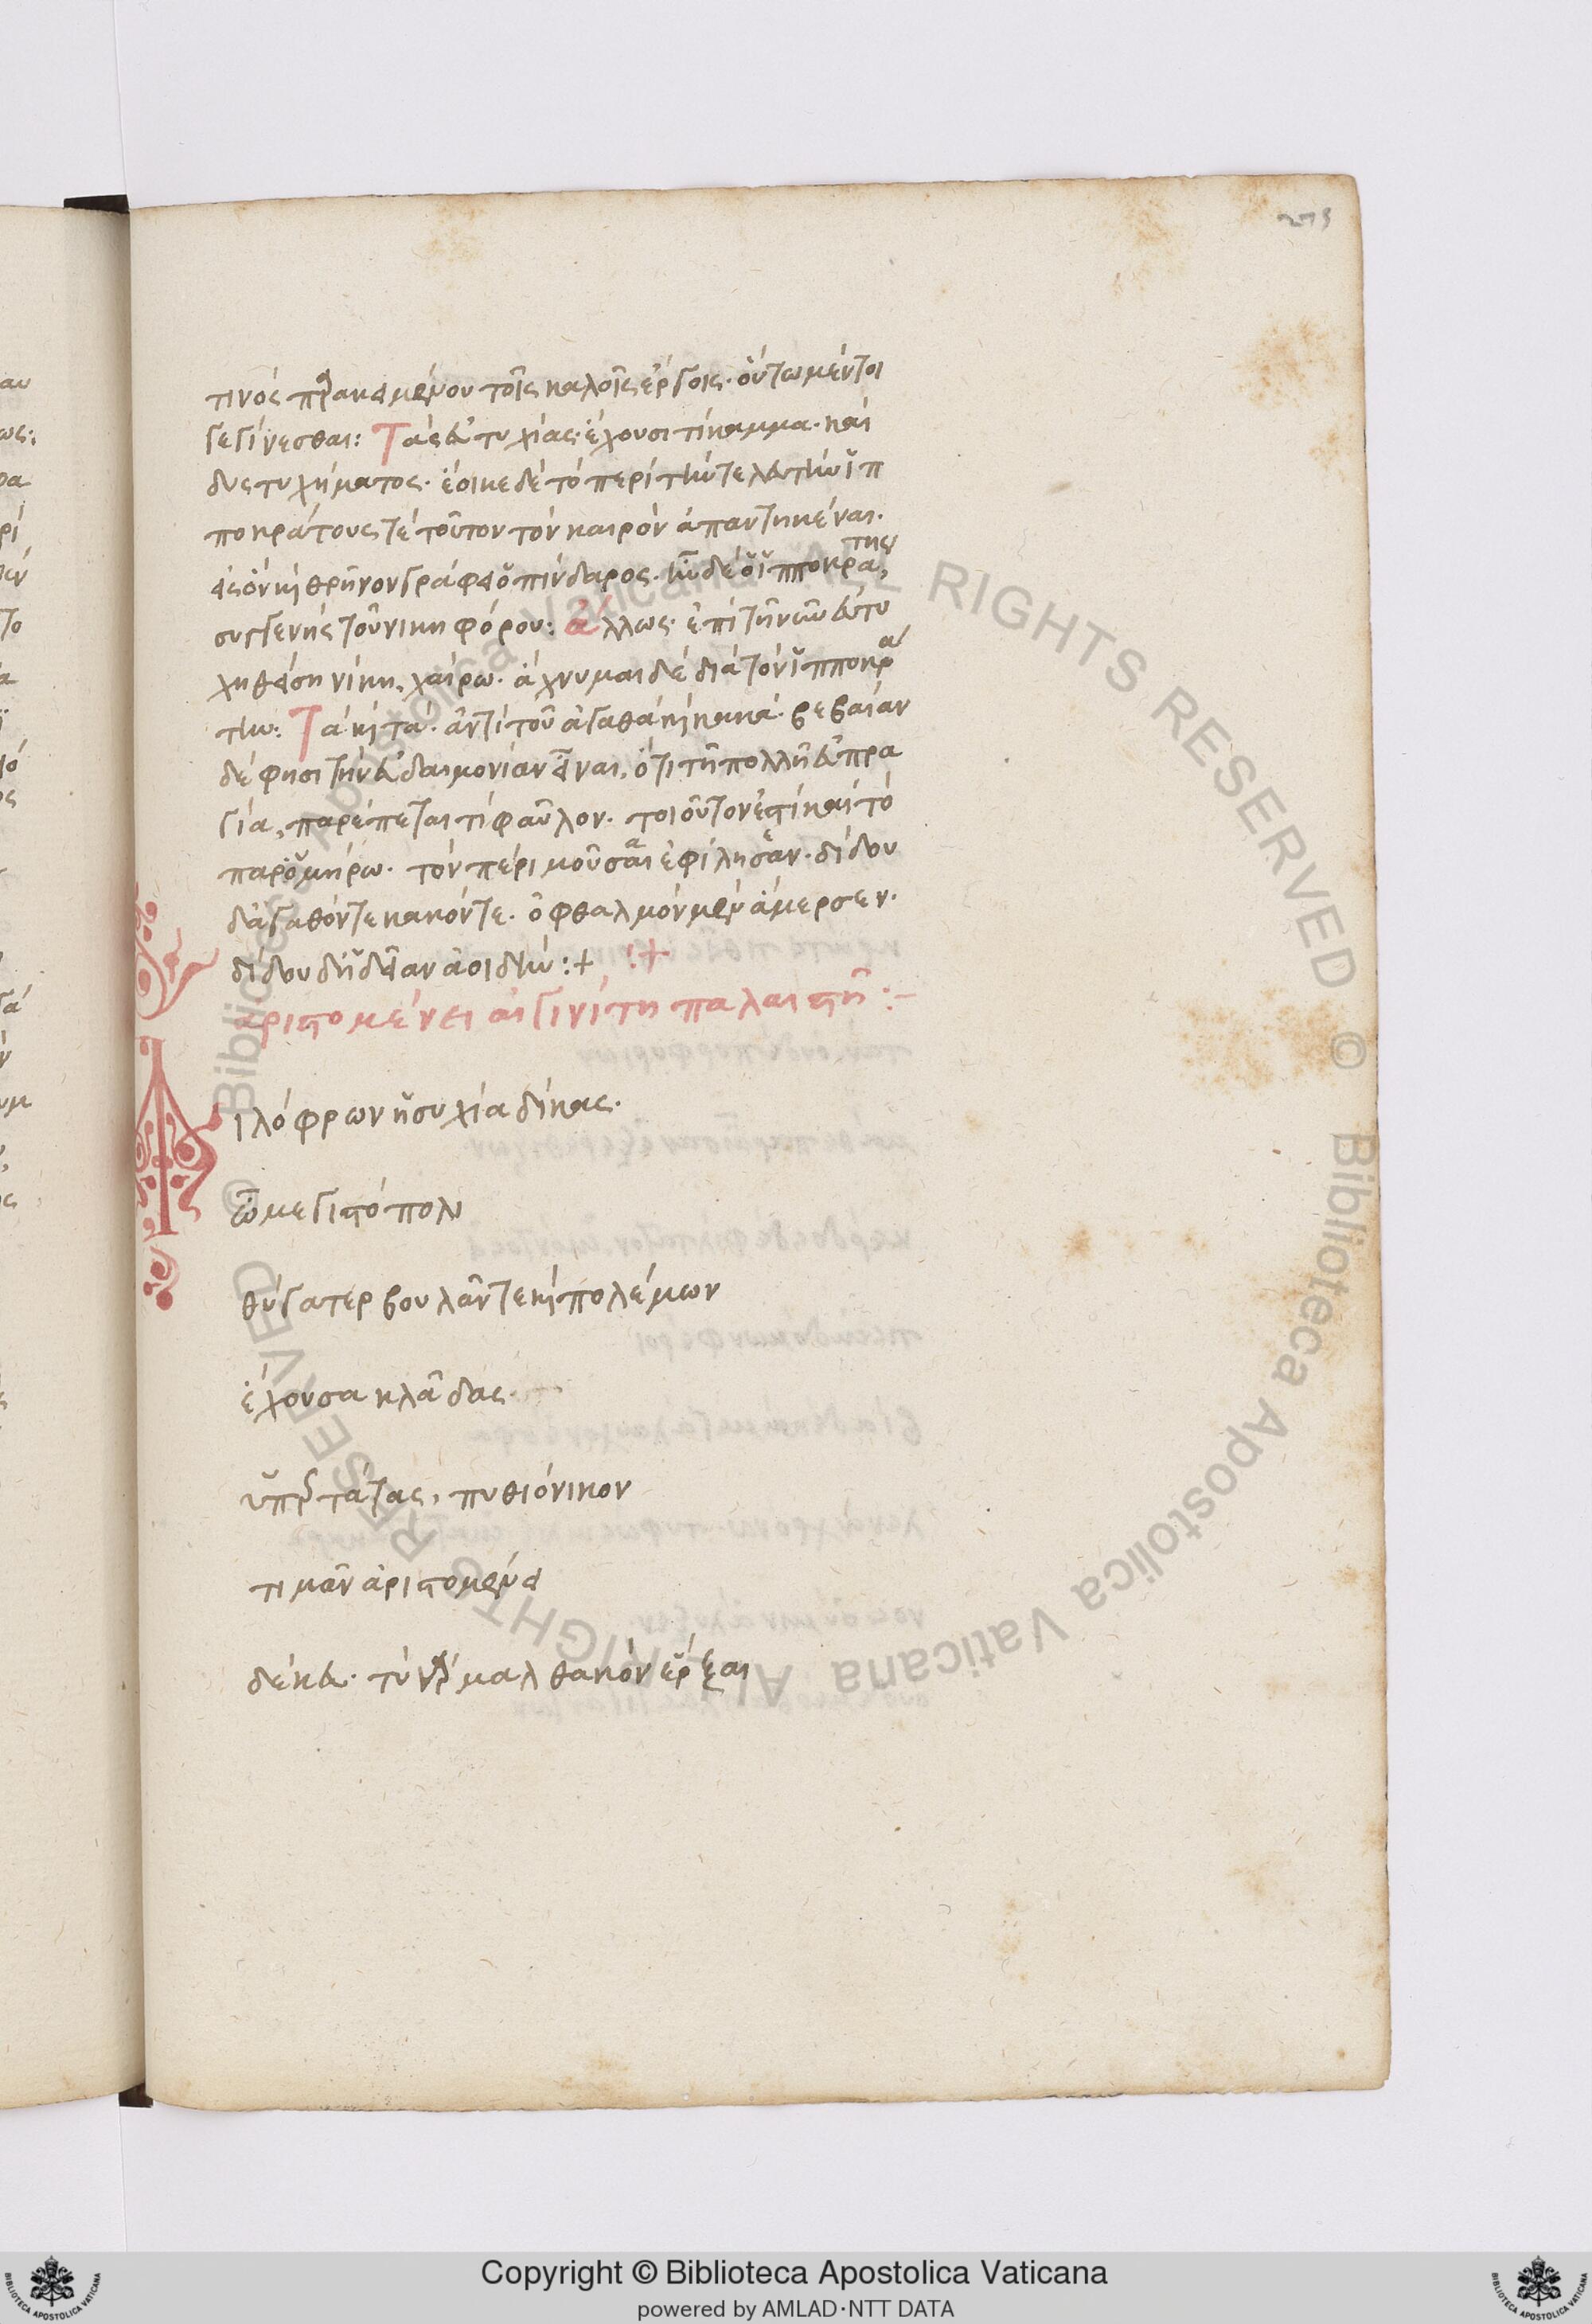 279
τινός παρακειμένου τοῖς καλοῖς ἔργοις· οὕτω μέντοι
γε γίνεσθαι: Τὰς εὐτυχίας· ἔχουσί τι κάμμα· καὶ
δυςτυχήματος· ἔοικε δὲ τὸ περὶ τὴν τελευτὴν ἱπ
ποκράτους τὲ τοῦτον τὸν καιρὸν ἀπαντηκέναι·
εἰς ὃν καὶ θρῆνον γράφει ὁ πίνδαρος· ἦν δὲ ὁ ἱπποκράτης
συγγενὴς τοῦ νικηφόρου: ἄλλως· ἐπὶ τῆ νέω εὐτυ
χηθείση νίκη, χαίρω· ἄχνυμαι δὲ διὰ τὸν ἱπποκρά
την: Τὰ καὶ τά· ἀντὶ τοῦ ἀγαθὰ καὶ κακά· βεβαίαν
δέ φησι τὴν εὐδαιμονίαν εἶναι, ὅτι τῆ πολλῆ εὐπρα
γία, παρέπεται τὶ φαῦλον· τοιοῦτον ἐστὶ καὶ τὸ
παρ' ὁμήρω· τὸν πέρι μοῦσαι ἐφίλησαν· δίδου
δ' ἀγαθόν τε κακόν τε· ὀφθαλμὸν μὲν ἄμερσεν·
δίδου δ' ἡδεῖαν ἀοιδήν:+ :+
αριστομένει αἰγινίτη παλαιστῆ:-
ιλόφρων ἡσυχία δίκας·
ὦ μεγιστόπολι
θύγατερ βουλᾶν τε καὶ πολέμων
ἔχουσα κλαῗδας·
ὑπερτάτας, πυθιόνικον
τιμὰν ἀριστομένει
δέκευ· τὺ γὰρ μαλθακὸν ἔρξαι
Copyright © Biblioteca Apostolica Vaticana
powered by AMLAD·NTT DATA